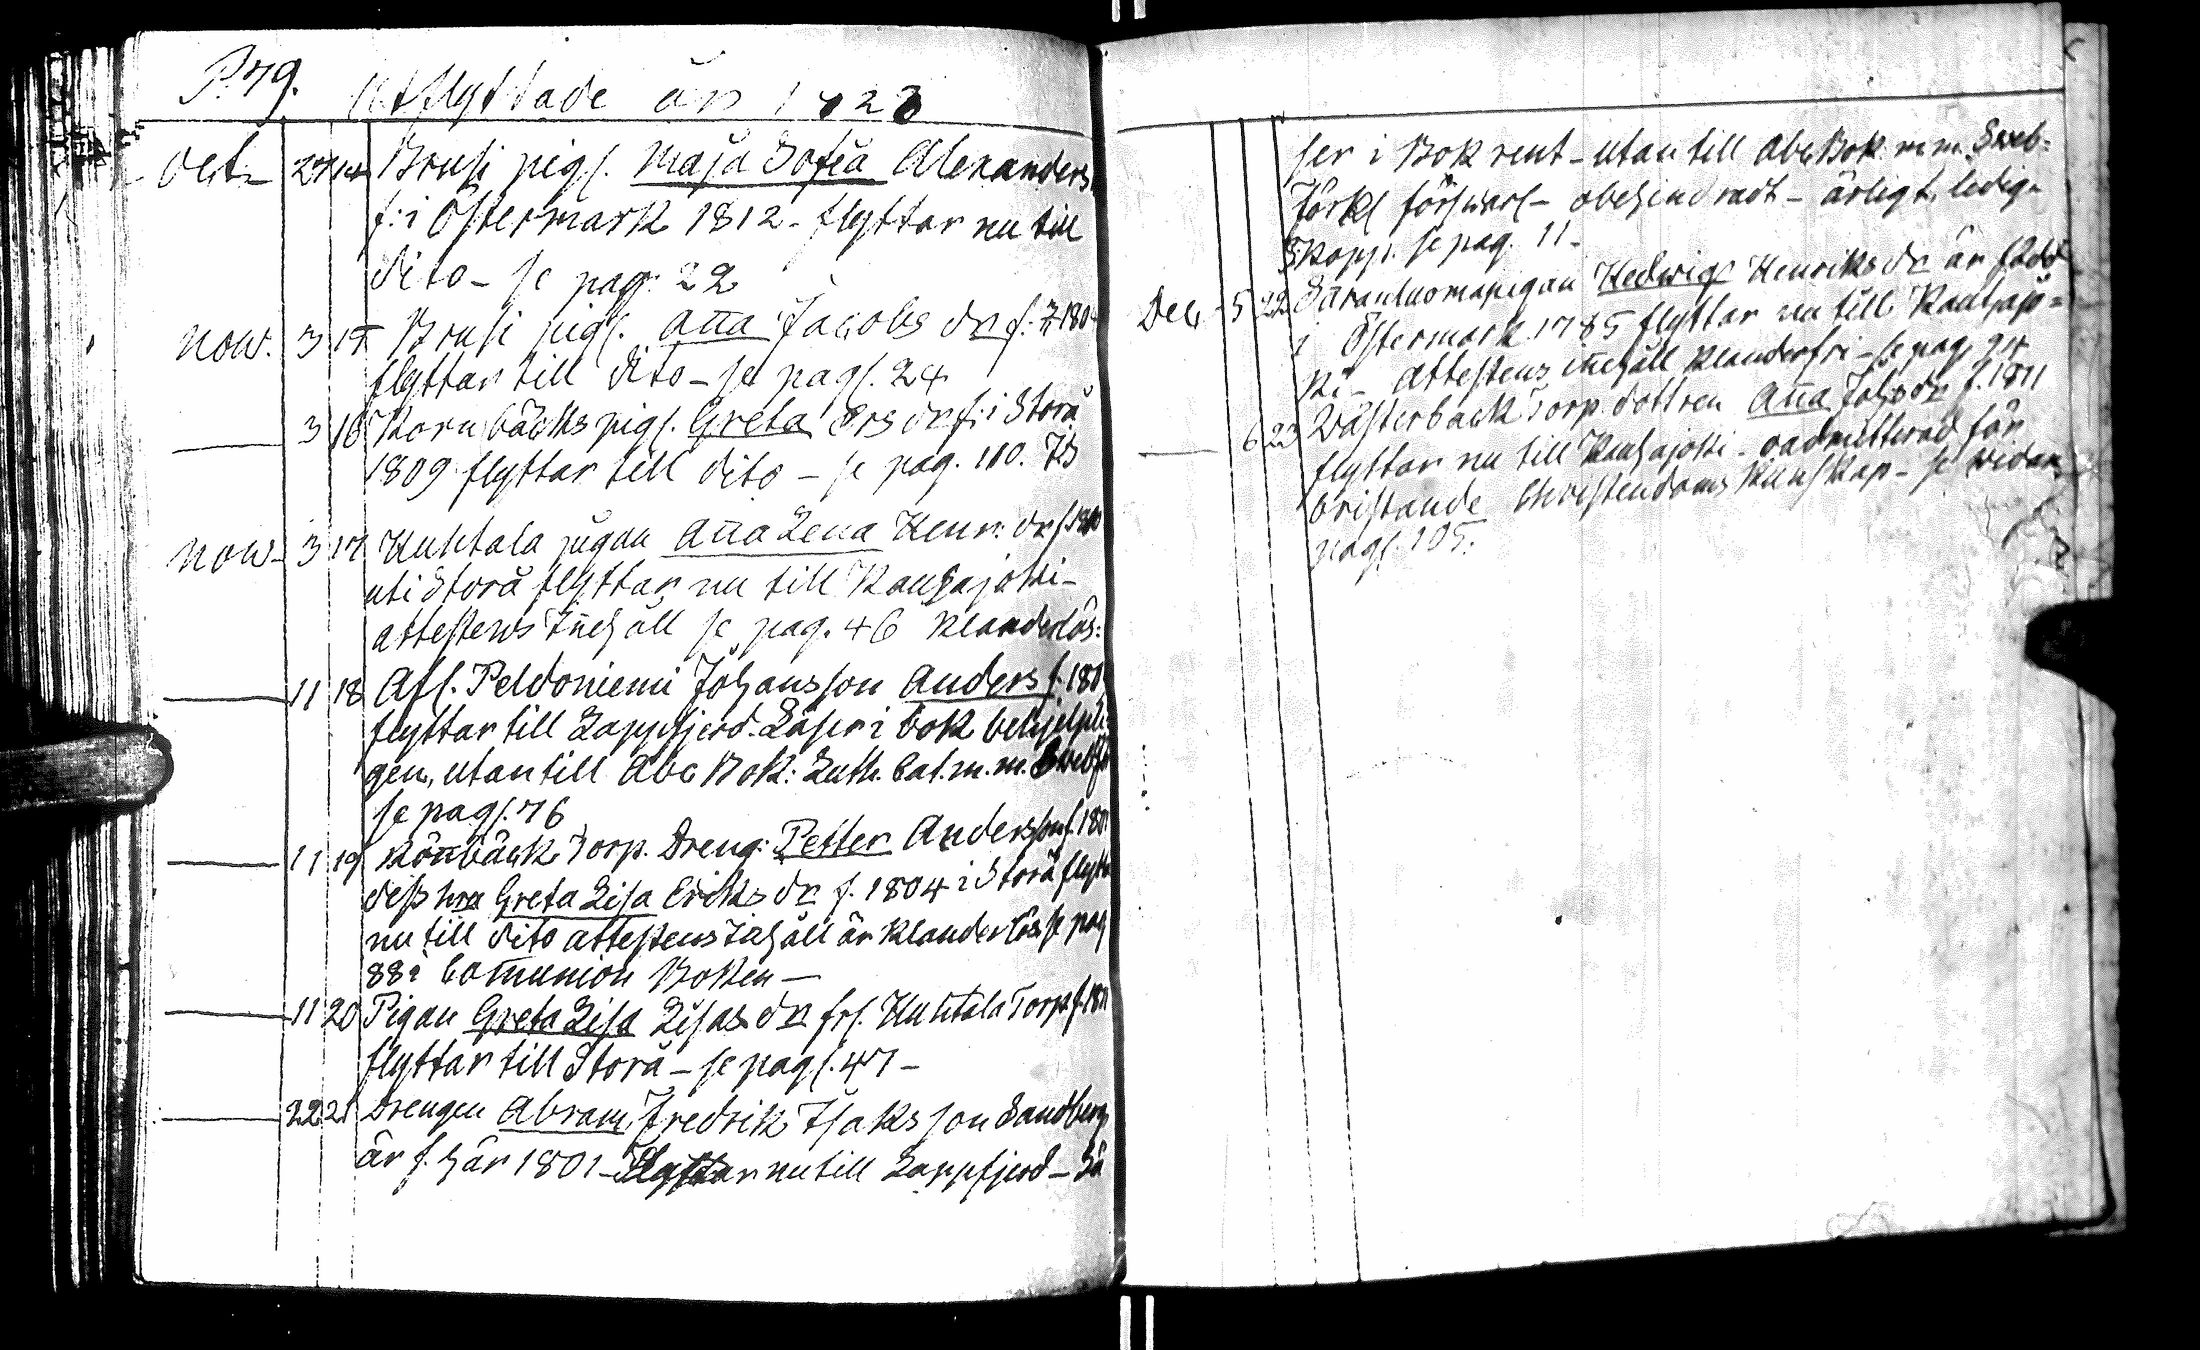 P. 79. Utflyttade år 1828
Oct. 27 14 Brusi pig. Maja Sofia Alexanders
f: i Östermark 1812 - flyttar nu till
dito - se pag: 22
Now. 3 15 Brusi pig. Aña Jacobs dr f.
flyttar till dito - se pag. 24
3 16 Kornbäcks pig. Greta Ers dr f: i Storå
1809 flyttar till dito - se pag. 110.
Now - 3 17 Huhtala pigan Aña Lena Henr: dr f.
uti Storå flyttar nu till Kauhajoki -
attestens Iñehåll se pag. 46 klanderlös:
11 18 Afl. Peldoniemi Johansson Anders f. 180
flyttar till Lappfjerd. Läser i bok behjelpli:
gen, utantill Abc Bok: Luth. Cat. m. m.
se pag. 76
11 19 Röñbäck Torp. Dreng: Petter Andersson f. 180
dess hru Greta Lisa Eriks dr f. 1804 i Storå flytta
nu till dito attestens Iñehåll är klanderlös se pag
88 i Comunion Boken -
11 20 Pigan Greta Lisa Lisas dr frå. Huhtala Torp f. 18
flyttar till Storå - se pag. 47 -
22 21 Drengen Abram Fredrik Isaksson Sandberg
är f. här 1801 - Flyttar nu till Lappfjerd - Lä
ser i Bok rent - utantill Abc Bok m.m. Sweb:
Förkl försvarl - obehindradt - ärligt. ledig
Kopp. se pag. 11 -
Dec - 5 22 Säräntuomapigan Hedwig Henriks dr är född
i Östermark 1785 flyttar nu till Kauhajo =
ki - Attestens iñehåll klanderfri - se pag.
6 23 Wästerback Torp. dottren Aña Johs dr f. 1811
flyttar nu till Kauhajoki - oadmitterad för
bristande Christendoms Kunskap - se widare
pag. 105.